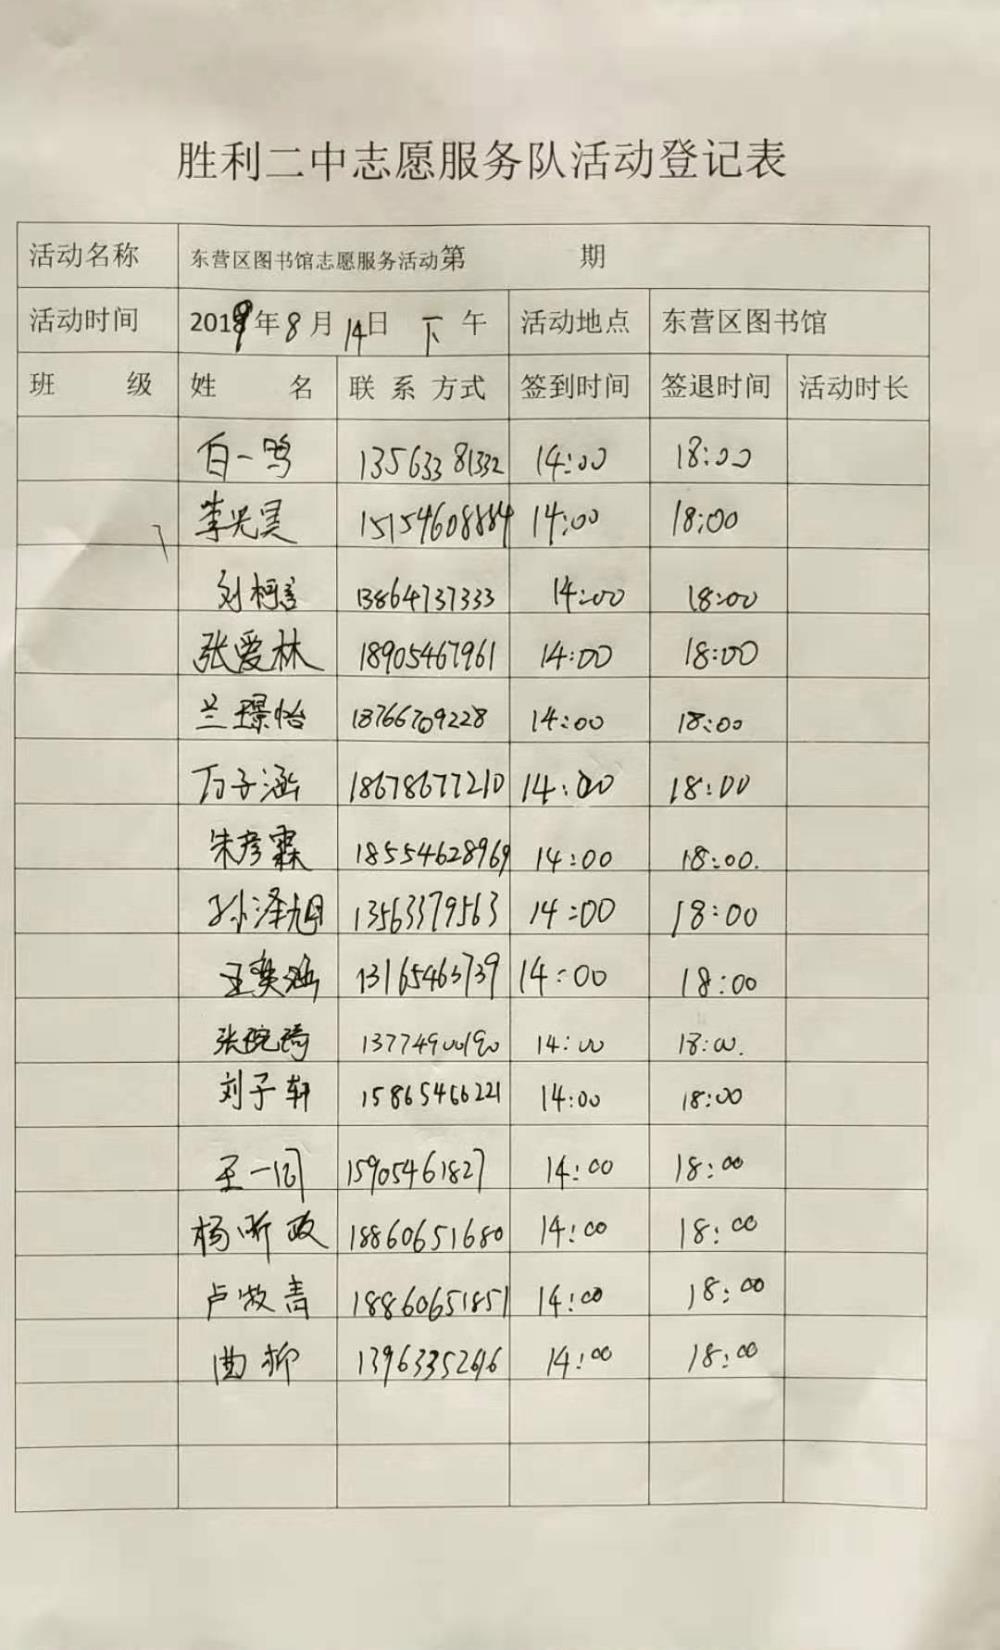 胜利二中志愿服务队活动登记表
活动名称 东营区图书馆志愿服务活动第 期
活动时间 2019年8月14日 下午 活动地点 东营区图书馆
班 级 姓 名 联系方式 签到时间 签退时间 活动时长
白一鸣 13563381332 14:00 18:00
李光昊 15154608884 14:00 18:00
刘柯言 13864737333 14:00 18:00
张爱林 18905467961 14:00 18:00
兰璟怡 18766709228 14:00 18:00
万子涵 18678677210 14:00 18:00
朱彦霖 18554628969 14:00 18:00.
孙泽旭 13563379563 14:00 18:00
王奕涵 13165463739 14:00 18:00
张琬琦 13774900190 14:00 18:00.
刘子轩 15865466221 14:00 18:00
王一同 15905461827 14:00 18:00
杨昕政 18860651680 14:00 18:00
卢 青 18860651851 14:00 18:00
曲柳 13963352616 14:00 18:00